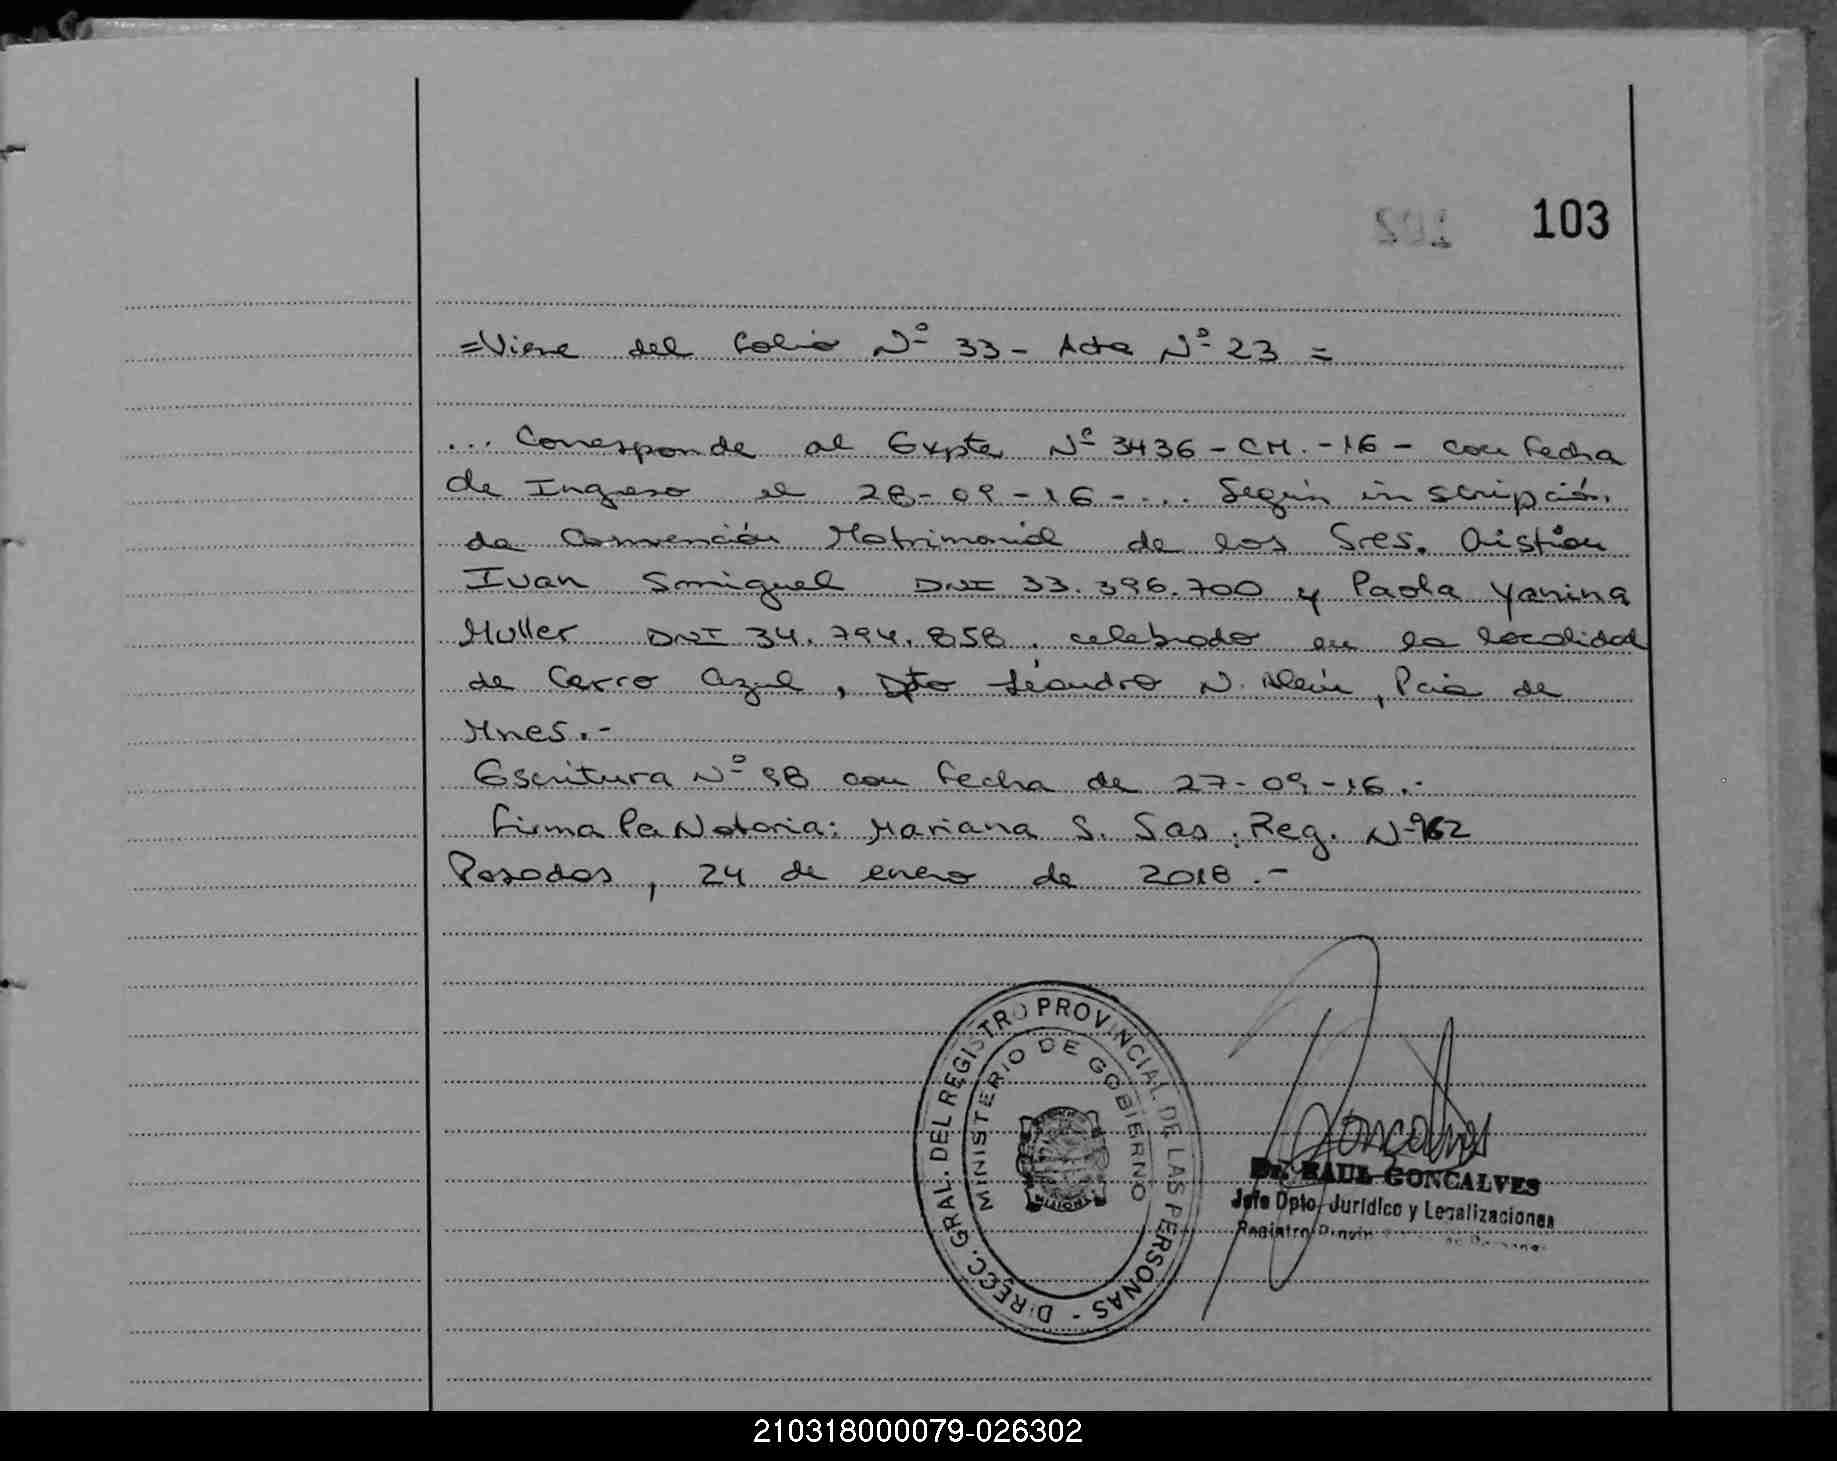 103
=Viene del folio Nº 33 - Acta Nº 23 =
... Corresponde al Expte Nº 3436 - CM. - 16 - con fecha
de Ingreso el 28 - 09 - 16 - ... Según inscripción
de Convención Matrimonial de los Sres. Cristian
Ivan Smiguel DNI 33.396.700 y Paola Yanina
Muller DNI 34.794.858. celebrado en la localidad
de Cerro Azul, Dpto Leandro N. Alem, Pcia de
Mnes.-
Escritura Nº 98 con fecha de 27 - 09 - 16.-
Firma la Notaria: Mariana S. Sas. Reg. Nº 162
Posadas, 24 de enero de 2018.-
DIRECC. GRAL. DEL REGISTRO PROVINCIAL DE LAS PERSONAS -
MINISTERIO DE GOBIERNO
Goncalves
Dr. RAUL GONCALVES
Jefe Dpto. Jurídico y Legalizaciones
Registro
210318000079-026302